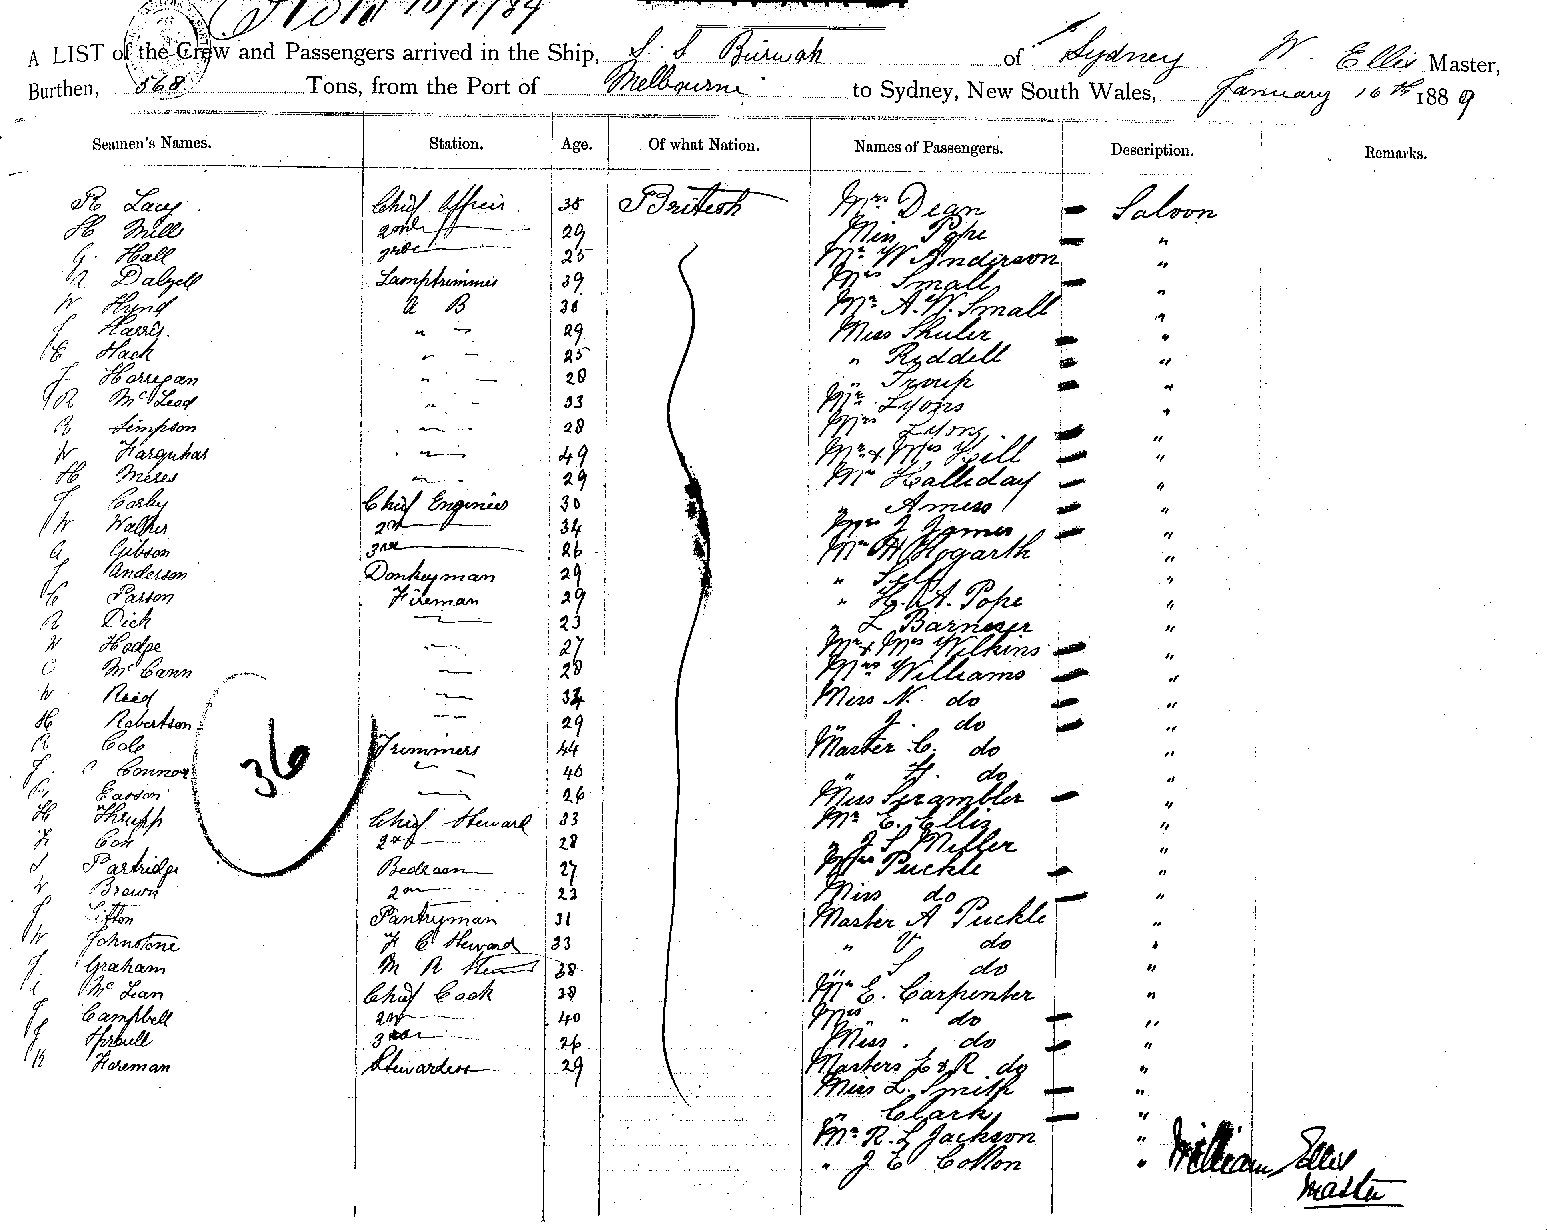 10/1/89
A LIST of the Crew and Passengers arrived in the Ship, S. S Burwah of Sydney W. Ellis Master,
Burthen, 568 Tons, from the Port of Melbourne to Sydney, New South Wales, January 10th 1889
Seamen's Names. Station. Age. Of what Nation. Names of Passengers. Description. Remarks.
R Lacy Chief Officer 38 British Mrs Dean Saloon
H Mills 2nd 29 Miss Pope "
G. Hall 3rd 25 Mr W Anderson "
R Dalzell Lamptrimmer 39 Mrs Small "
W Hynd A B 38 Mr A. W. Small "
J Harris. " 29 Miss Shuler "
C Hack " 25 " Riddell "
J. Horrigan " 28 " Troup "
R McLeod " 33 Mr Lyons "
R Simpson " 28 Mrs Lyons "
W Farquhar " 49 Mr & Mrs Hill "
H Meres " 29 Mr Halliday "
J Corby Chief Engineer 30 " Amess "
W Walker 2nd 34 Mrs J James "
A Gibson 3rd 26 Mr H Hogarth "
J Anderson Donkeyman 29 " "
C Parson Fireman 29 " H. A. Pope "
R Dick 23 " L Barnesir "
W Hodge 27 Mr & Mrs Wilkins "
C McCann 28 Mrs Williams "
W Reed 34 Miss N. do "
H Robertson 29 " J. do "
R Cole Trimmers 44 Master C. do "
J. O Connor 40 " H. do "
Easson 26 Miss Scrambler "
H Thrupp Chief Steward 33 Mr E. Ellis "
F Cox 2nd 28 " J S Miller "
S Partridge Bedroom 27 Mrs Puckle "
W Brown 2nd 23 Miss do "
J Sitton Pantryman 31 Master A Puckle "
W Johnstone F C Steward 33 " V do "
J. Graham M R Steward 38 " S do "
McLean Chief Cook 38 Mr E. Carpenter "
J. Campbell 2nd 40 Mrs " do "
J Sproull 3rd 26 Miss . do "
K Foreman Stewardess 29 Masters E & R do "
Miss L. Smith "
" Clark "
Mr R. L Jackson "
" J E Cotton "
36
William Ellis
Master